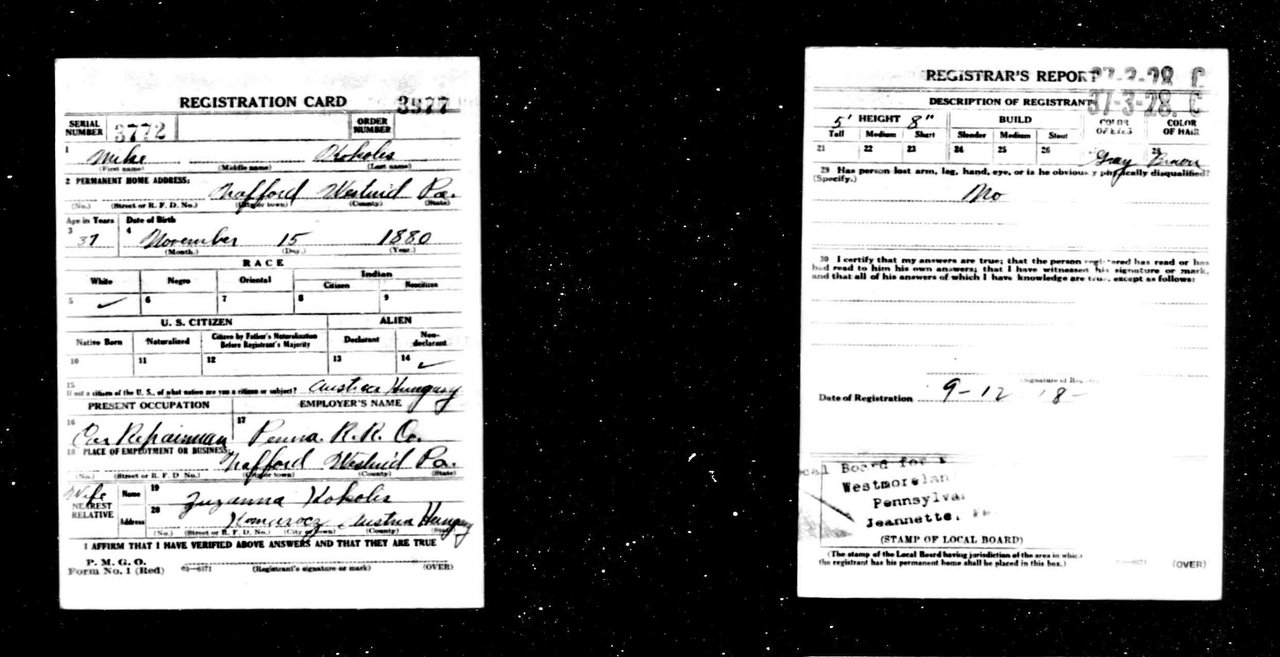 REGISTRATION CARD 3977
SERIAL NUMBER 3772 ORDER NUMBER
1 Mike Kokolis
(First name) (Middle name) (Last name)
2 PERMANENT HOME ADDRESS: Trafford Westmld Pa.
(No.) (Street or R. F. D. No.) (City or town) (County) (State)
Age in Years Date of Birth
3 37 4 November 15 1880
(Month.) (Day.) (Year.)
RACE
White Negro Oriental Indian
Citizen Noncitizen
5 ✓ 6 7 8 9
U. S. CITIZEN ALIEN
Native Born Naturalized Citizen by Father's Naturalization Before Registrant's Majority Declarant Non-declarant
10 11 12 13 14 ✓
15 If not a citizen of the U. S., of what nation are you a citizen or subject? Austria Hungary
PRESENT OCCUPATION EMPLOYER'S NAME
16 Car Repairman 17 Penna. R.R. Co.
18 PLACE OF EMPLOYMENT OR BUSINESS: Trafford Westmld Pa.
(No.) (Street or R. F. D No.) (City or town) (County) (State)
Wife
NEAREST RELATIVE Name 19 Zuzanna Kokolis
Address 20 Austria Hungary
(No.) (Street or R. F. D. No.) (City or town) (County) (State)
I AFFIRM THAT I HAVE VERIFIED ABOVE ANSWERS AND THAT THEY ARE TRUE
P. M. G. O.
Form No. 1 (Red) 03—6171 (Registrant's signature or mark) (OVER)
REGISTRAR'S REPORT 37-3-28 C
DESCRIPTION OF REGISTRANT 37-3-28. C
5' HEIGHT 8" BUILD COLOR OF EYES COLOR OF HAIR
Tall Medium Short Slender Medium Stout
21 22 23 24 25 26 Gray 28 Brown
29 Has person lost arm, leg, hand, eye, or is he obviously physically disqualified?
(Specify.) No
30 I certify that my answers are true; that the person registered has read or has
had read to him his own answers; that I have witnessed his signature or mark,
and that all of his answers of which I have knowledge are true, except as follows:
Date of Registration 9-12 18-
cal Board for
Westmorelan
Pennsylva
Jeannette,
(STAMP OF LOCAL BOARD)
(The stamp of the Local Board having jurisdiction of the area in which
the registrant has his permanent home shall be placed in this box.) (OVER)